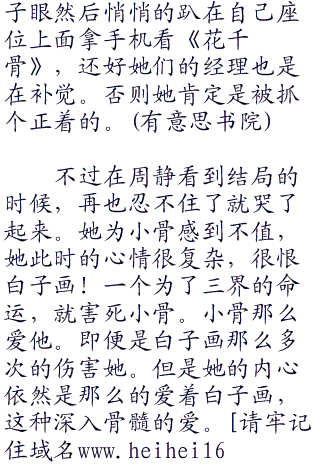 子眼然后悄悄的趴在自己座
位上面拿手机看《花千
骨》，还好她们的经理也是
在补觉。否则她肯定是被抓
个正着的。(有意思书院)
不过在周静看到结局的
时候，再也忍不住了就哭了
起来。她为小骨感到不值，
她此时的心情很复杂，很恨
白子画！一个为了三界的命
运，就害死小骨。小骨那么
爱他。即便是白子画那么多
次的伤害她。但是她的内心
依然是那么的爱着白子画，
这种深入骨髓的爱。[请牢记
住域名www.heihei16